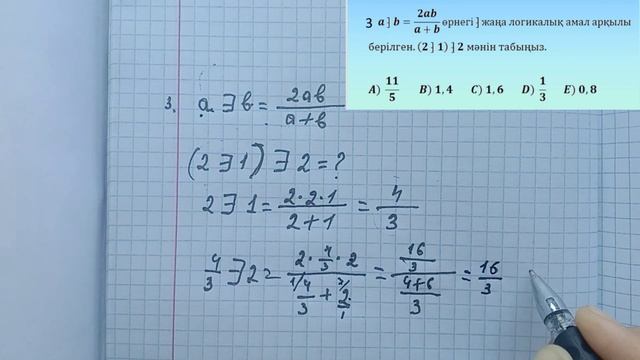 3 a ⇃ b = 2ab / a + b өрнегі ⇃ жаңа логикалық амал арқылы
берілген. (2 ⇃ 1) ⇃ 2 мәнін табыңыз.
A) 11/5 B) 1,4 C) 1,6 D) 1/3 E) 0,8
3. a ∃ b = 2ab / a+b
(2 ∃ 1) ∃ 2 = ?
2 ∃ 1 = 2·2·1 / 2+1 = 4/3
4/3 ∃ 2 = 2 · 4/3 · 2 / 1/ 4/3 + 3/ 2/1 = 16/3 / 4+6/3 = 16/3